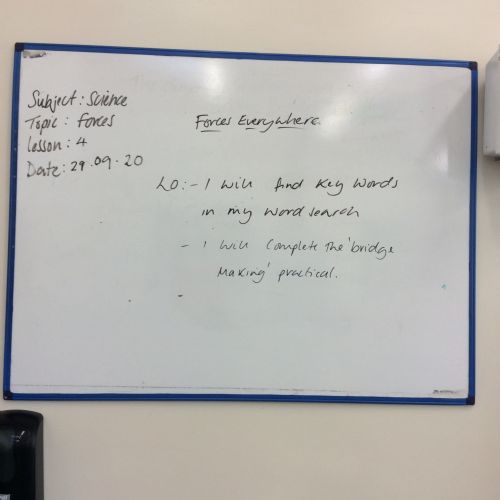 Subject: Science
Topic: forces
lesson: 4
Date: 29.09.20
Forces Everywhere
LO:- I will find key words
in my word search
- I will complete the 'bridge
Making' practical.